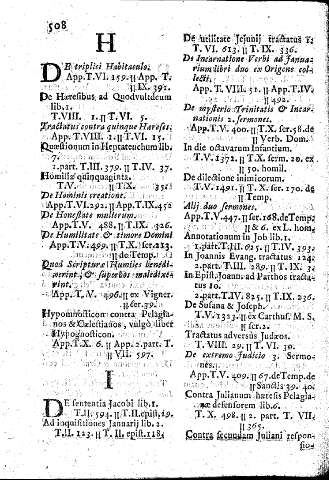 508
H
DE triplici Habitaculo.
App. T. VI. 159. || App. T.
|| IX. 391.
De Hæresibus ad Quodvultdeum
lib. 1.
T. VIII. 1. || T. VI. 5.
Tractatus contra quinque Hæreses.
App. T. VIII. 1. || T. VI. 15.
Quæstionum in Heptateuchum lib.
7.
1. part. T. III. 379. || T. IV. 37.
Homiliæ quinquaginta.
T. V. || T. X. 351.
De Hominis creatione.
App. T. VI. 292. || App. T. IX. 452
De Honestate mulierum.
App. T. V. 488. || T. IX. 326.
De Humilitate & timore Domini
App. T. V. 499. || T. X. ser. 213.
|| de Temp.
Quod Scripturæ Humiles benedi-
xerint, & superbos maledixe-
rint.
App. T. V. 496. || ex Vigner.
|| ser. 39.
Hypomnosticon contra Pelagia-
nos & Cælestianos, vulgò libet
Hypognosticon.
App. T. X. 6. || App. 2. part. T.
|| VII. 597.
I
DE sententia Jacobi lib. 1.
T. II. 594. || T. II. epist. 29.
Ad inquisitiones Januarii lib. 2.
T. II. 123. || T. II. epist. 118.
De utilitate Jejunij tractatus 1.
T. VI. 613. || T. IX. 336.
De Incarnatione Verbi ad Janua-
rium libri duo ex Origene col-
lecti.
App. T. VIII. 51. || App. T. IV.
|| 492.
De mysterio Trinitatis & Incar-
nationis 2. sermones.
App. T. V. 400. || T. X. ser. 38. de
|| Verb. Dom.
In die octavarum Infantium.
T. V. 1372. || T. X. serm. 20. ex
|| 50. homil.
De dilectione inimicorum.
T. V. 1491. || T. X. ser. 170. de
|| Temp.
Alij duo sermones.
App. T. V. 447. || ser. 168. de Temp.
|| & 6. ex L. hom.
Annotationum in Job lib. 1.
1. part. T. III. 625. || T. IV. 393.
In Joannis Evang. tractatus 124.
2. part. T. III. 289. || T. IX. 3.
In Epist. Joann. ad Parthos tracta-
tus 10.
2. part. T. IV. 825. || T. IX. 236.
De Susana & Joseph.
T. V. 1323. || ex Carthus. M. S.
|| ser. 2.
Tractatus adversus Judæos.
T. VIII. 29. || T. VI. 30.
De extremo Judicio 3. Sermo-
nes.
App. T. V. 409. || 67. de Temp. de
|| Sanctis 39. 40.
Contra Julianum hæresis Pelagia-
næ defensorem lib. 6.
T. X. 498. || 2. part. T. VII.
|| 365.
Contra secundam Juliani respon-
sio